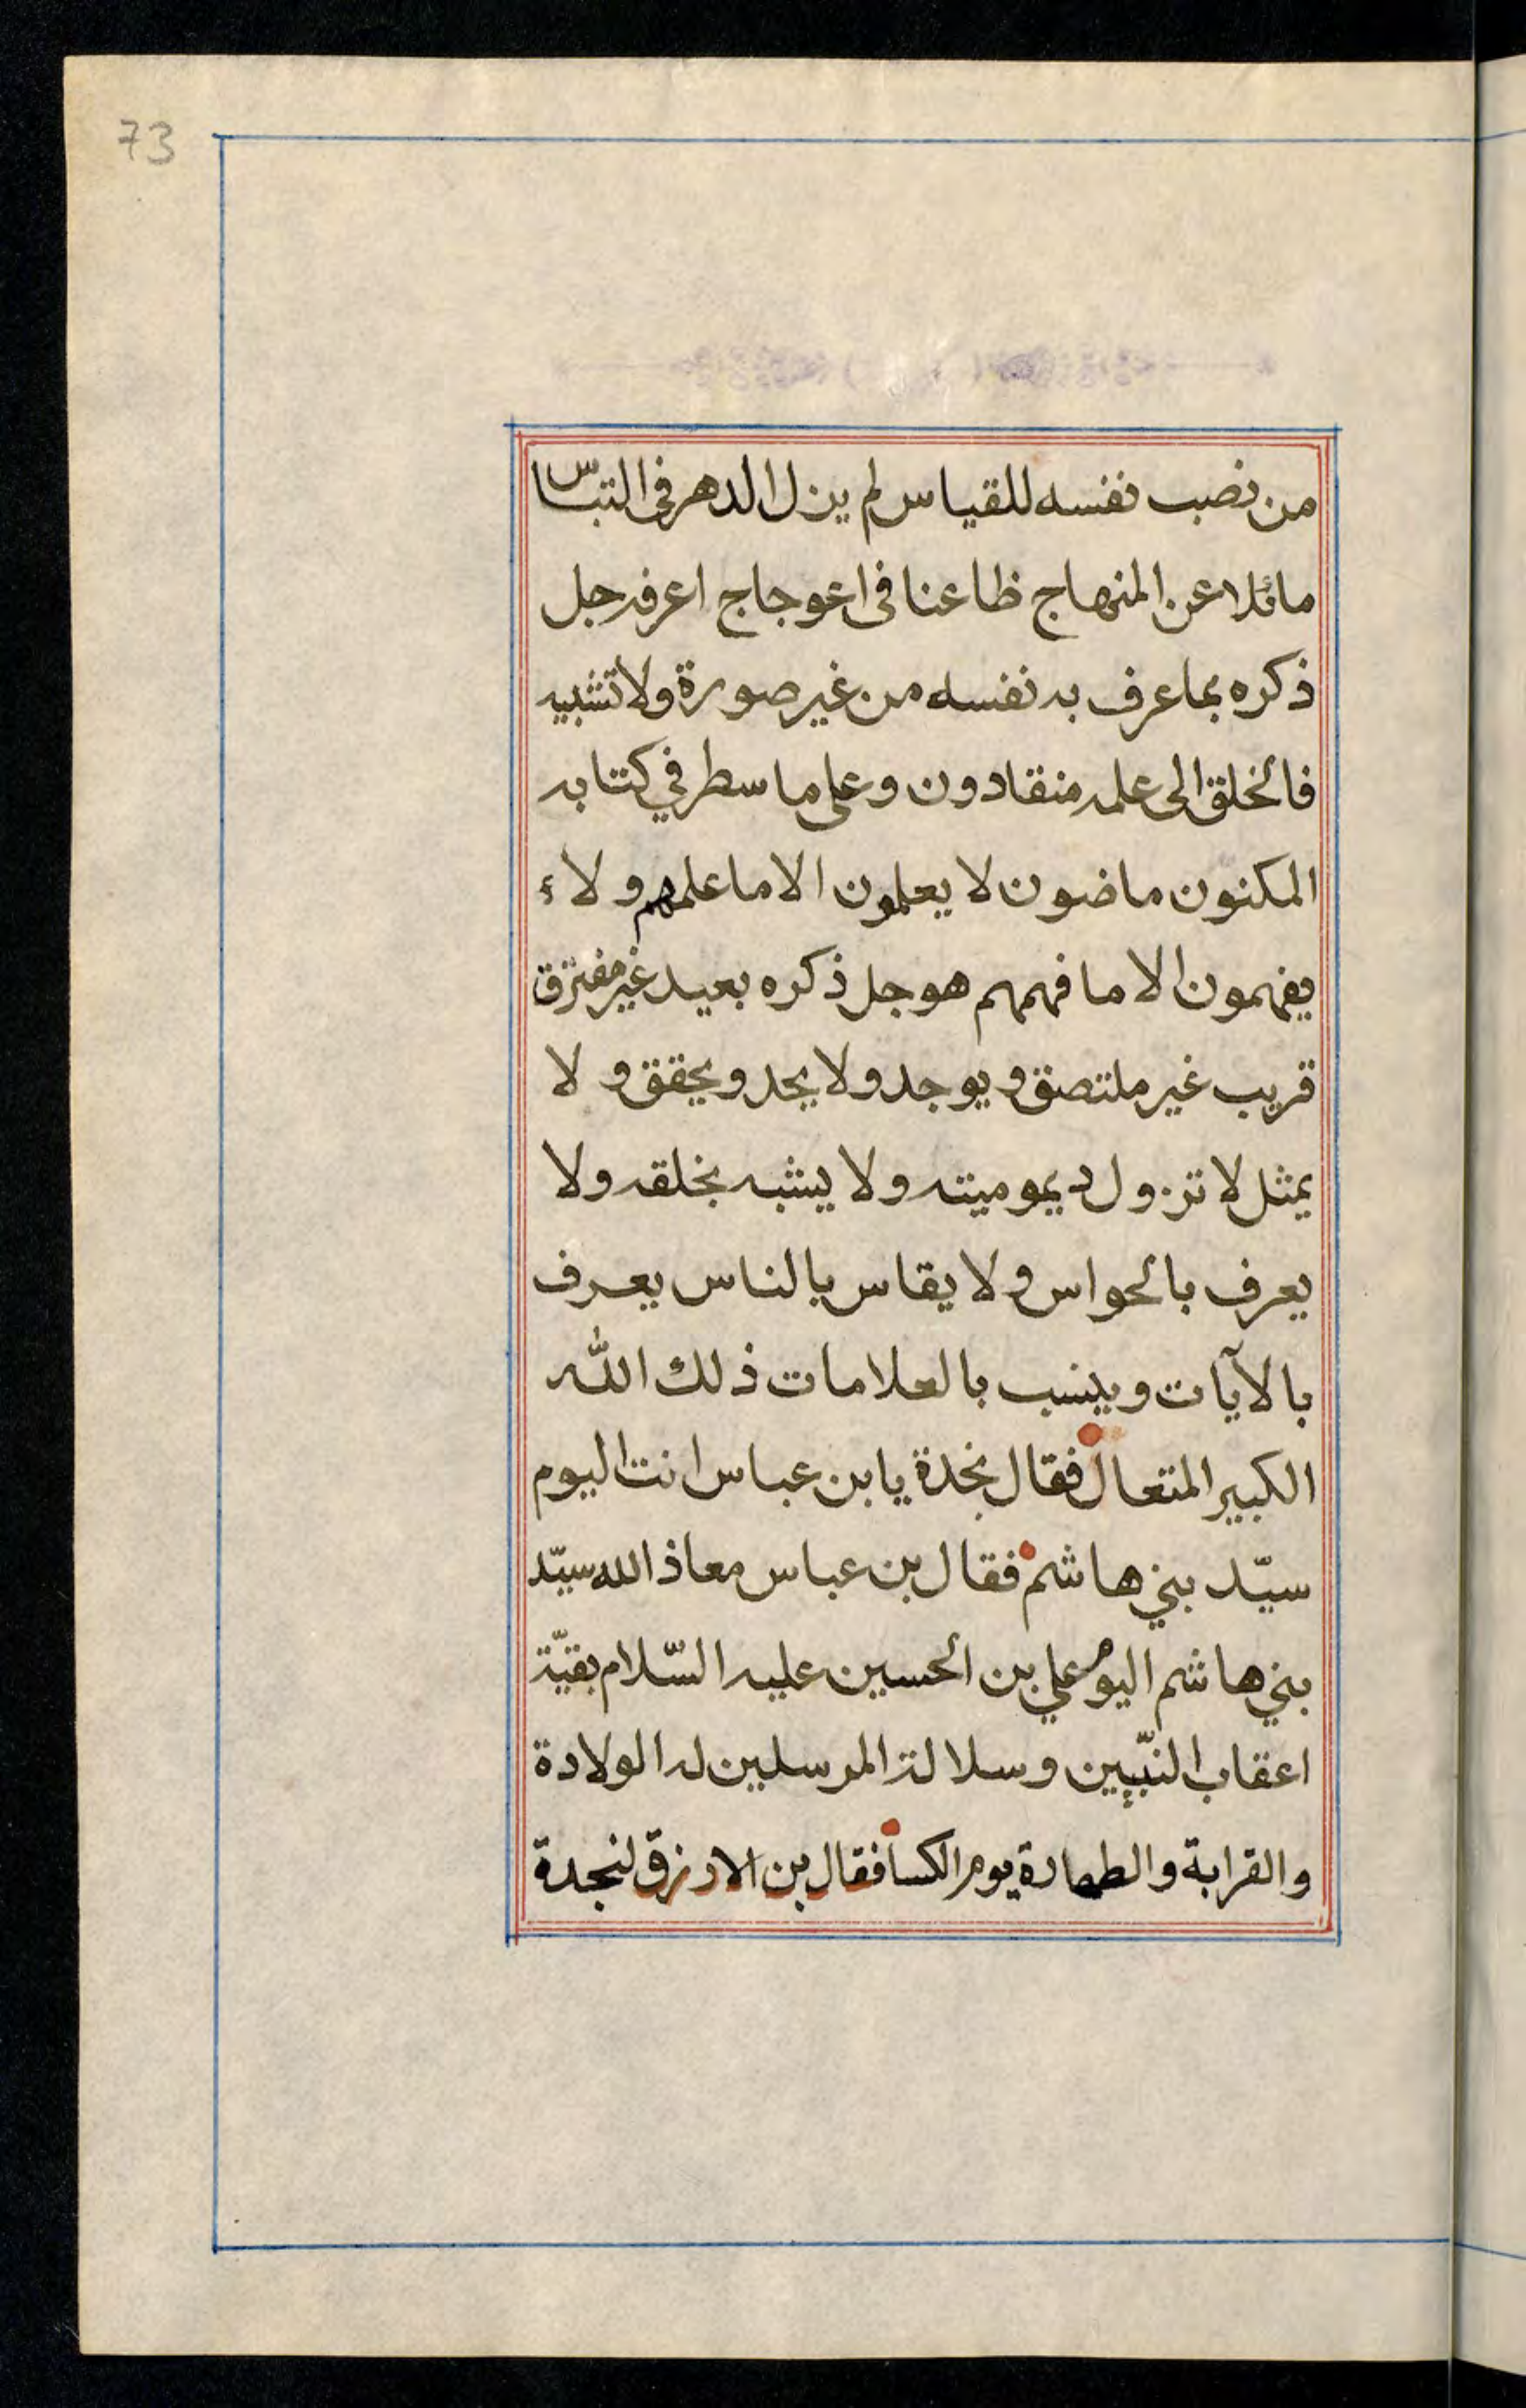 73
من نصب نفسه للقياس لم يزل الدهر في التباس
مائلا عن المنهاج ظاعنا فى اعوجاج اعرفه جل
ذكره بما عرف به نفسه من غير صورة ولا تشبيه
فالخلق الى علمه منقادون وعلى ما سطر في كتابه
المكنون ماضون لا يعلمون الا ما علمهم ولاء
يفهمون الا ما فهمهم هو جل ذكره بعيد غير مفترق
قريب غير ملتصق ويوجد ولا يحد ويحقق ولا
يمثل لا تزول ديموميته ولا يشبه بخلقه ولا
يعرف بالحواس ولا يقاس بالناس يعرف
بالآيات وينسب بالعلامات ذلك الله
الكبير المتعال فقال نجدة يابن عباس انت اليوم
سيّد بني هاشم فقال بن عباس معاذ الله سيّد
بني هاشم اليوم علي بن الحسين عليه السّلام بقيّة
اعقاب النبّيين وسلالة المرسلين له الولادة
والقرابة والطهارة يوم الكسا فقال بن الازرق لنجدة